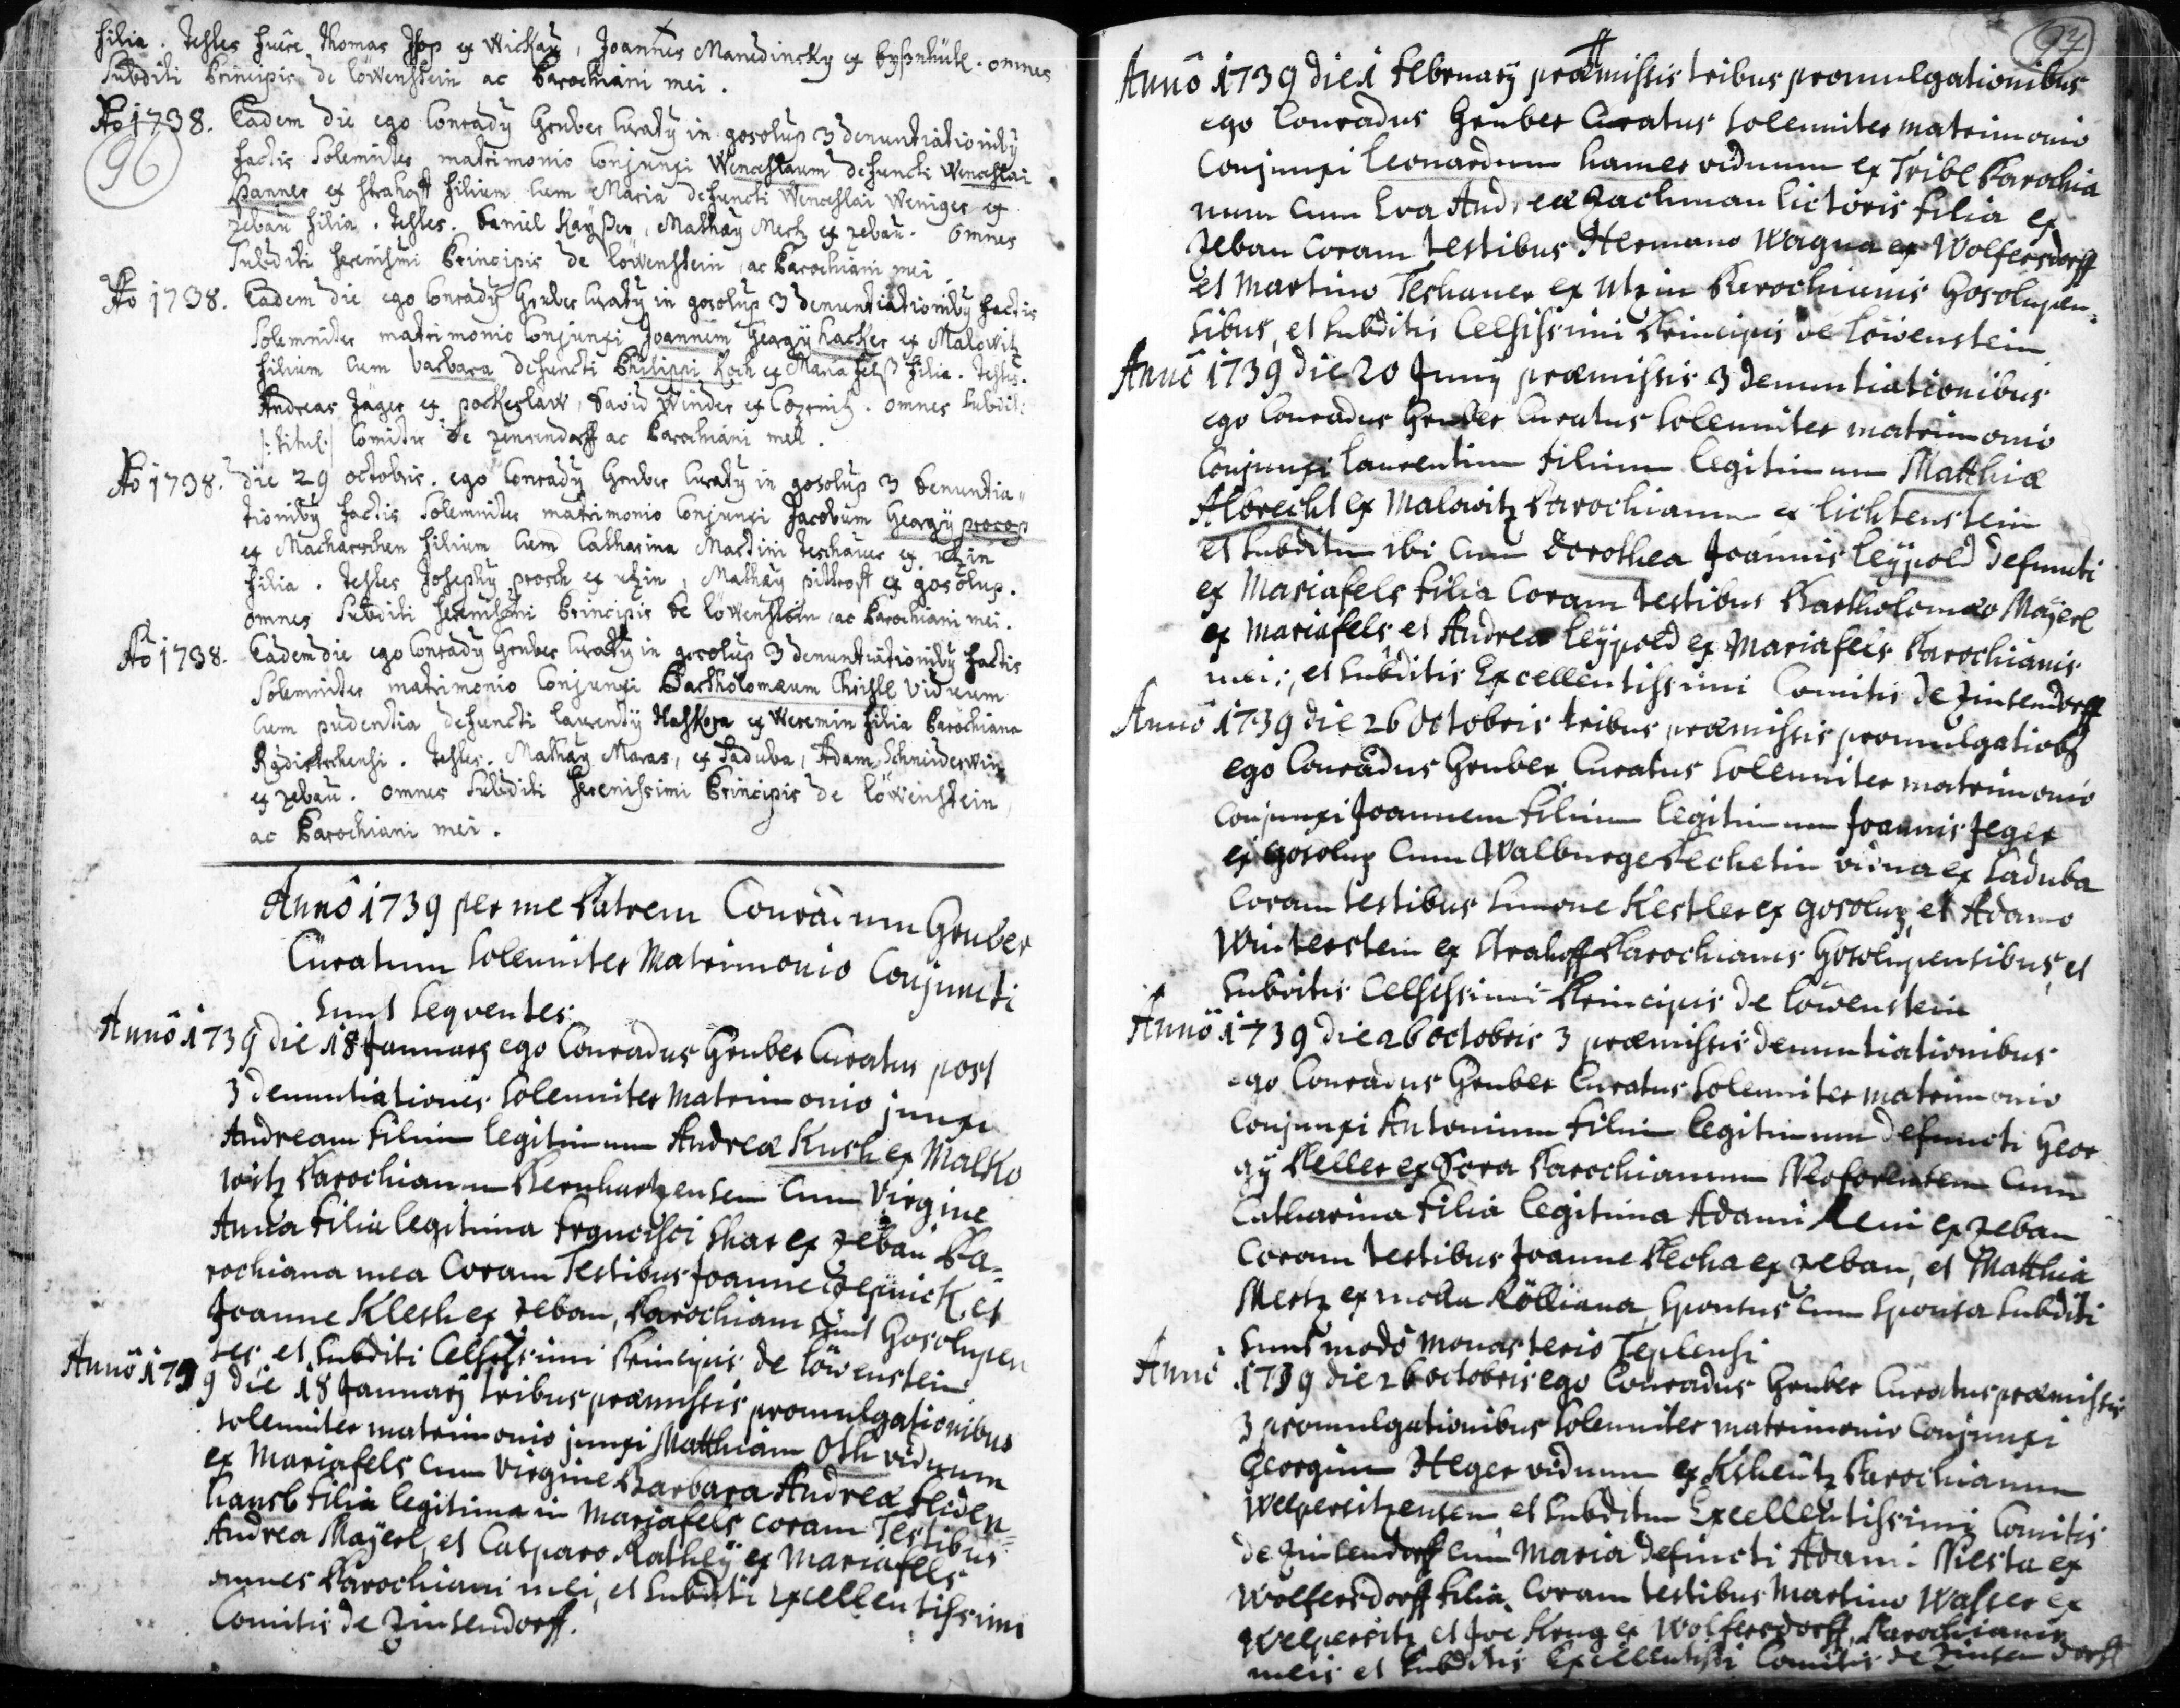 filia. Testes fuere Thomas Hop ex Wickau, Joannes Manedinsky ex byßnhütl. omnes
Subditi Principis de löwenstein ac Parochiani mei.
Ao 1738. Eadem die ego Conrady Gruber Curaty in gosolup 3 denuntiationiby
96
factis Solemniter matrimonio Conjunxi Wenceslaum defuncti Wenceslai
Panner ex strahoff filium Cum Maria defuncti Wenceslai Weniger ex
zebau filia. testes. Daniel Kayßer, Mathæy Mertz ex zebau. Omnes
Subditi Serenissimi Principis de löwenstein, ac Parochiani mei.
Ao 1738. Eadem die ego Conrady Gruber Curaty in gosolup 3 denuntiationiby factis
Solemniter matrimonio Conjunxi Joannem Georgÿ hacker ex Malowitz
filium Cum barbara defuncti Philippi Koch ex Maria felß filia. Testes.
Andreas Jäger ex pockeslaw, David Winder ex Czernitz. omnes Subditi
/:titul:/ Comitis de zinzendorff ac Parochiani mei.
Ao 1738. die 29 octobris. ego Conrady Gruber Curaty in gosolup 3 denuntia-
tioniby factis Solemniter matrimonio Conjunxi Jacobum Georgÿ procop
ex Macharschen filium Cum Catharina Martini teschauer ex utzin
filia. testes Josephy prosch ex utzin, Mathæy pittroff ex gosolup.
omnes Subditi Serenissimi Principis de löwenstein ac Parochiani mei.
Ao 1738. Eadem die ego Conrady Gruber Curaty in gosolup 3 denuntiationiby factis
Solemniter matrimonio Conjunxi Bartholomæum Christl Viduum
Cum pudentia defuncti laurentÿ Haskora ex Weremin filia Parochiana
testes. Mathæy Maras, ex Saduba, Adam Schneiderwinz
ex zebau. omnes Subditi Serenissimi Principis de löwenstein,
ac Parochiani mei.
Annô 1739 per me Patrem Conradum Gruber
Curatum Solemniter Matrimonio Conjuncti
Sunt Seqventes:
Annô 1739 die 18 Januarÿ ego Conradus Gruber Curatus post
3 denuntiationes Solemniter Matrimonio junxi
Andream filium legitimum Andreæ Kush ex Malko
witz Parochianum Bernhartzensem Cum Virgine
Anna filia legitima Francisci Shar ex zebau Pa-
rochiana mea Coram Testibus Joanne Czepnick, et
Joanne Klesh ex zebau, Parochiani sunt Gosolupen
ses et Subditi Celsissimi Principis de löwenstein
Annô 1739 die 18 Januarÿ tribus præmissis promulgationibus
solemniter matrimonio junxi Matthiam Oth viduum
ex Mariafels cum Virgine Barbara Andreæ Fliden-
hansl filia legitima in Mariafels coram Testibus
Andrea Maÿerl, et Casparo Rathlÿ ex Mariafels
omnes Parochiani mei, et Subditi Excellentissimi
Comitis de Zinsendorff.
97
Annô 1739 die 1 Februarÿ præmissis tribus promulgationibus
ego Conradus Gruber Curatus Solemniter matrimonio
Conjunxi leonardum hamer viduum ex Tribl Parochia
num cum Eva Andreæ Zachman lictoris filia ex
Zeban Coram testibus Hermano Wagna ex Wolfersdorff
et Martino Teshauer ex Utzin Parochianis Gosolupen-
sibus, et Subditis Celsissimi Principis de löwenstein
Annô 1739 die 20 Junÿ præmissis 3 denuntiationibus
ego Conradus Gruber Curatus Solemniter matrimonio
Conjunxi laurentium filium legitimum Matthiæ
Albrecht ex Malowitz Parochianum ex lichtenstein
et subditum ibi Cum Dorothea Joannis leÿpold defuncti
ex Mariafels filia Coram testibus Bartholomæo Maÿerl
ex Mariafels, et Andrea leÿpold ex Mariafels Parochianis
meis, et Subditis Excellentissimi Comitis de Zinsendorff
Annô 1739 die 26 Octobris tribus præmissis promulgatiobg
ego Conradus Gruber Curatus Solemniter matrimonio
Conjunxi Joannem filium legitimum Joannis Jeger
ex Gosolup Cum Walburge Pechetin vidua ex Saduba
Coram testibus Simone Kestler ex gosolup, et Adamo
Winterstein ex Strahoff Parochianis Gosolupensibus, et
Subditis Celsissimi Principis de löwenstein
Annô 1739 die 26 octobris 3 præmissis denuntiationibus
ego Conradus Gruber Curatus Solemniter matrimonio
Conjunxi Antonium filium legitimum defuncti Geor
gÿ Peller ex Sora Parochianum Neoforensem Cum
Catharina filia legitima Adami Reni ex zeban
Coram testibus Joanne Pecha ex zeban, et Matthia
Mertz ex molla Kölliana, Sponsus cum Sponsa Subditi
sunt modo Monasterio Teplensi
Annô 1739 die 26 octobris ego Conradus Gruber Curatus præmissis
3 promulgationibus Solemniter matrimonio Conjunxi
Georgium Heger viduum ex Ksheütz Parochianum
Welpersitzensem, et Subditum Excellentissimi Comitis
de Zinsendorff cum Maria defuncti Adami Niesta ex
Wolfersdorff filia. Coram testibus Martino Wasser ex
Welpersitz et Joe Krug ex Wolfersdorff, Parochianis
meis et Subditis Excellentissi Comitis de Zinsendorff